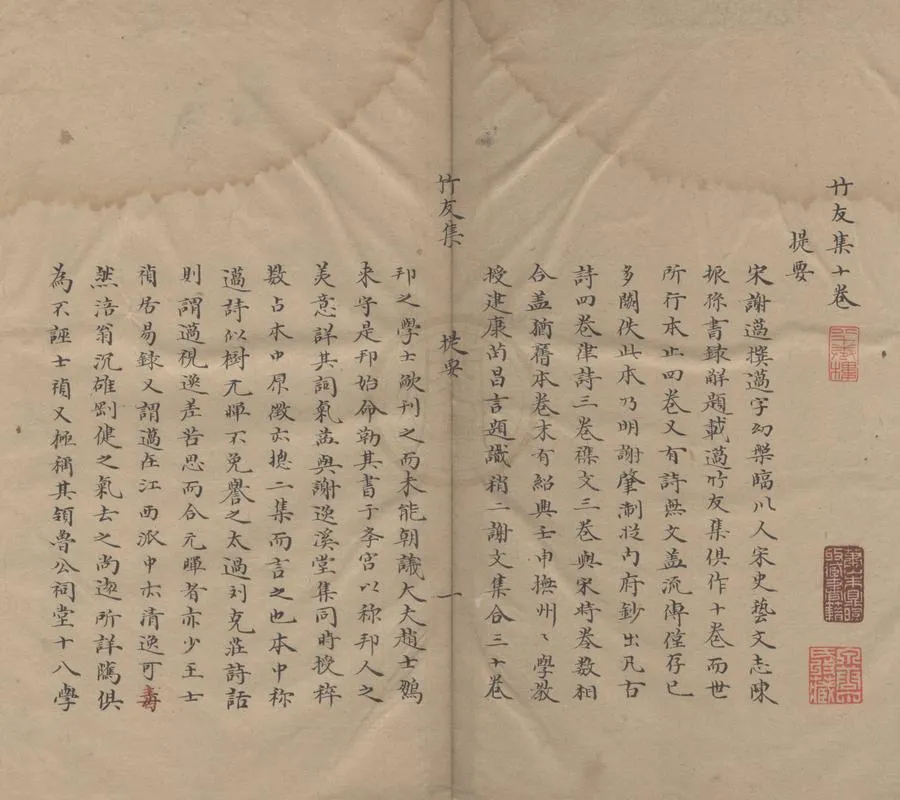 竹友集十卷
提要
宋謝薖撰薖字幼槃臨川人宋史藝文志陳
振孫書錄解題載薖竹友集俱作十卷而世
所行本止四卷又有詩無文蓋流傳僅存已
多闕佚此本乃明謝肇淛從內府鈔出凡古
詩四卷律詩三卷襍文三卷與宋時卷數相
合蓋猶舊本卷末有紹興壬申撫州〻學教
授建康苗昌言題識稱二謝文集合三十卷
竹友集
提要
一
邦之學士欲刊之而未能朝議大夫趙士鵬
來守是邦始命勒其書于學宮以稱邦人之
美意詳其詞氣蓋與謝逸溪堂集同時授梓
數占本中原徵亦摠二集而言之也本中称
薖詩似樹元暉不免譽之太過刘克莊詩話
則謂薖視逸差苦思而合元暉者亦少王士
禎居易錄又謂薖在江西派中亦清逸可壽
然涪翁沉雄剛健之氣去之尚遠所詳隲俱
為不誣士禎又極稱其領魯公祠堂十八學